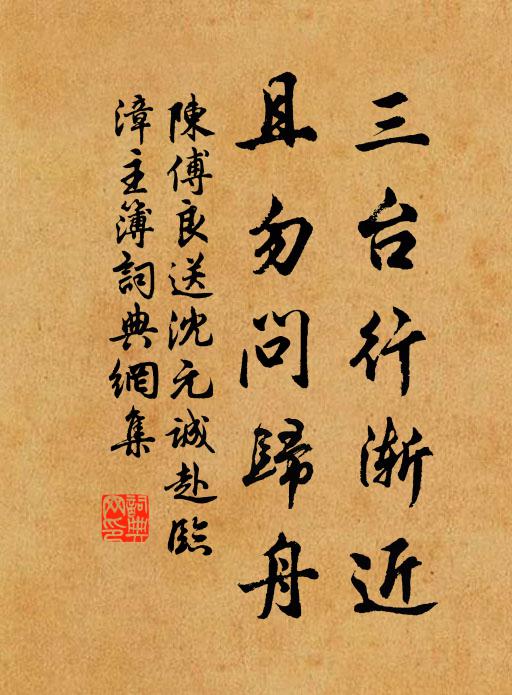 三台行漸近
且勿問歸舟
陳傅良送沈元誠赴臨
漳主簿詞典網集
詞典網印